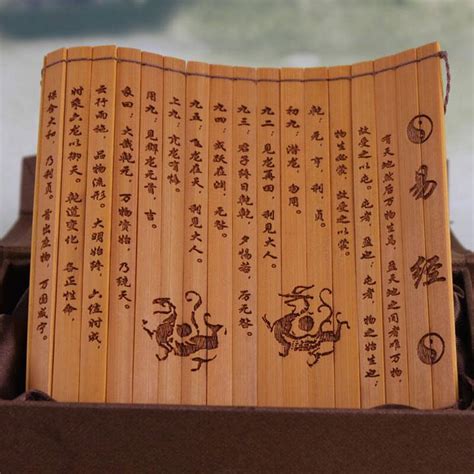 易经
有天地然后万物生焉，盈天地之间者唯万物，
故受之以屯。屯者，盈之也。屯者，物之始生也。
物生必蒙，故受之以蒙。
乾，元，亨，利，贞。
初九：潜龙，勿用。
九二：见龙再田，利见大人。
九三：君子终日乾乾，夕惕若，厉无咎。
九四：或跃在渊，无咎。
九五：飞龙在天，利见大人。
上九：亢龙有悔。
用九：见群龙无首，吉。
彖曰：大哉乾元，万物资始，乃统天。
云行雨施，品物流形。大明始终，六位时成，
时乘六龙以御天。乾道变化，各正性命，
保合大和，乃利贞。首出庶物，万国咸宁。